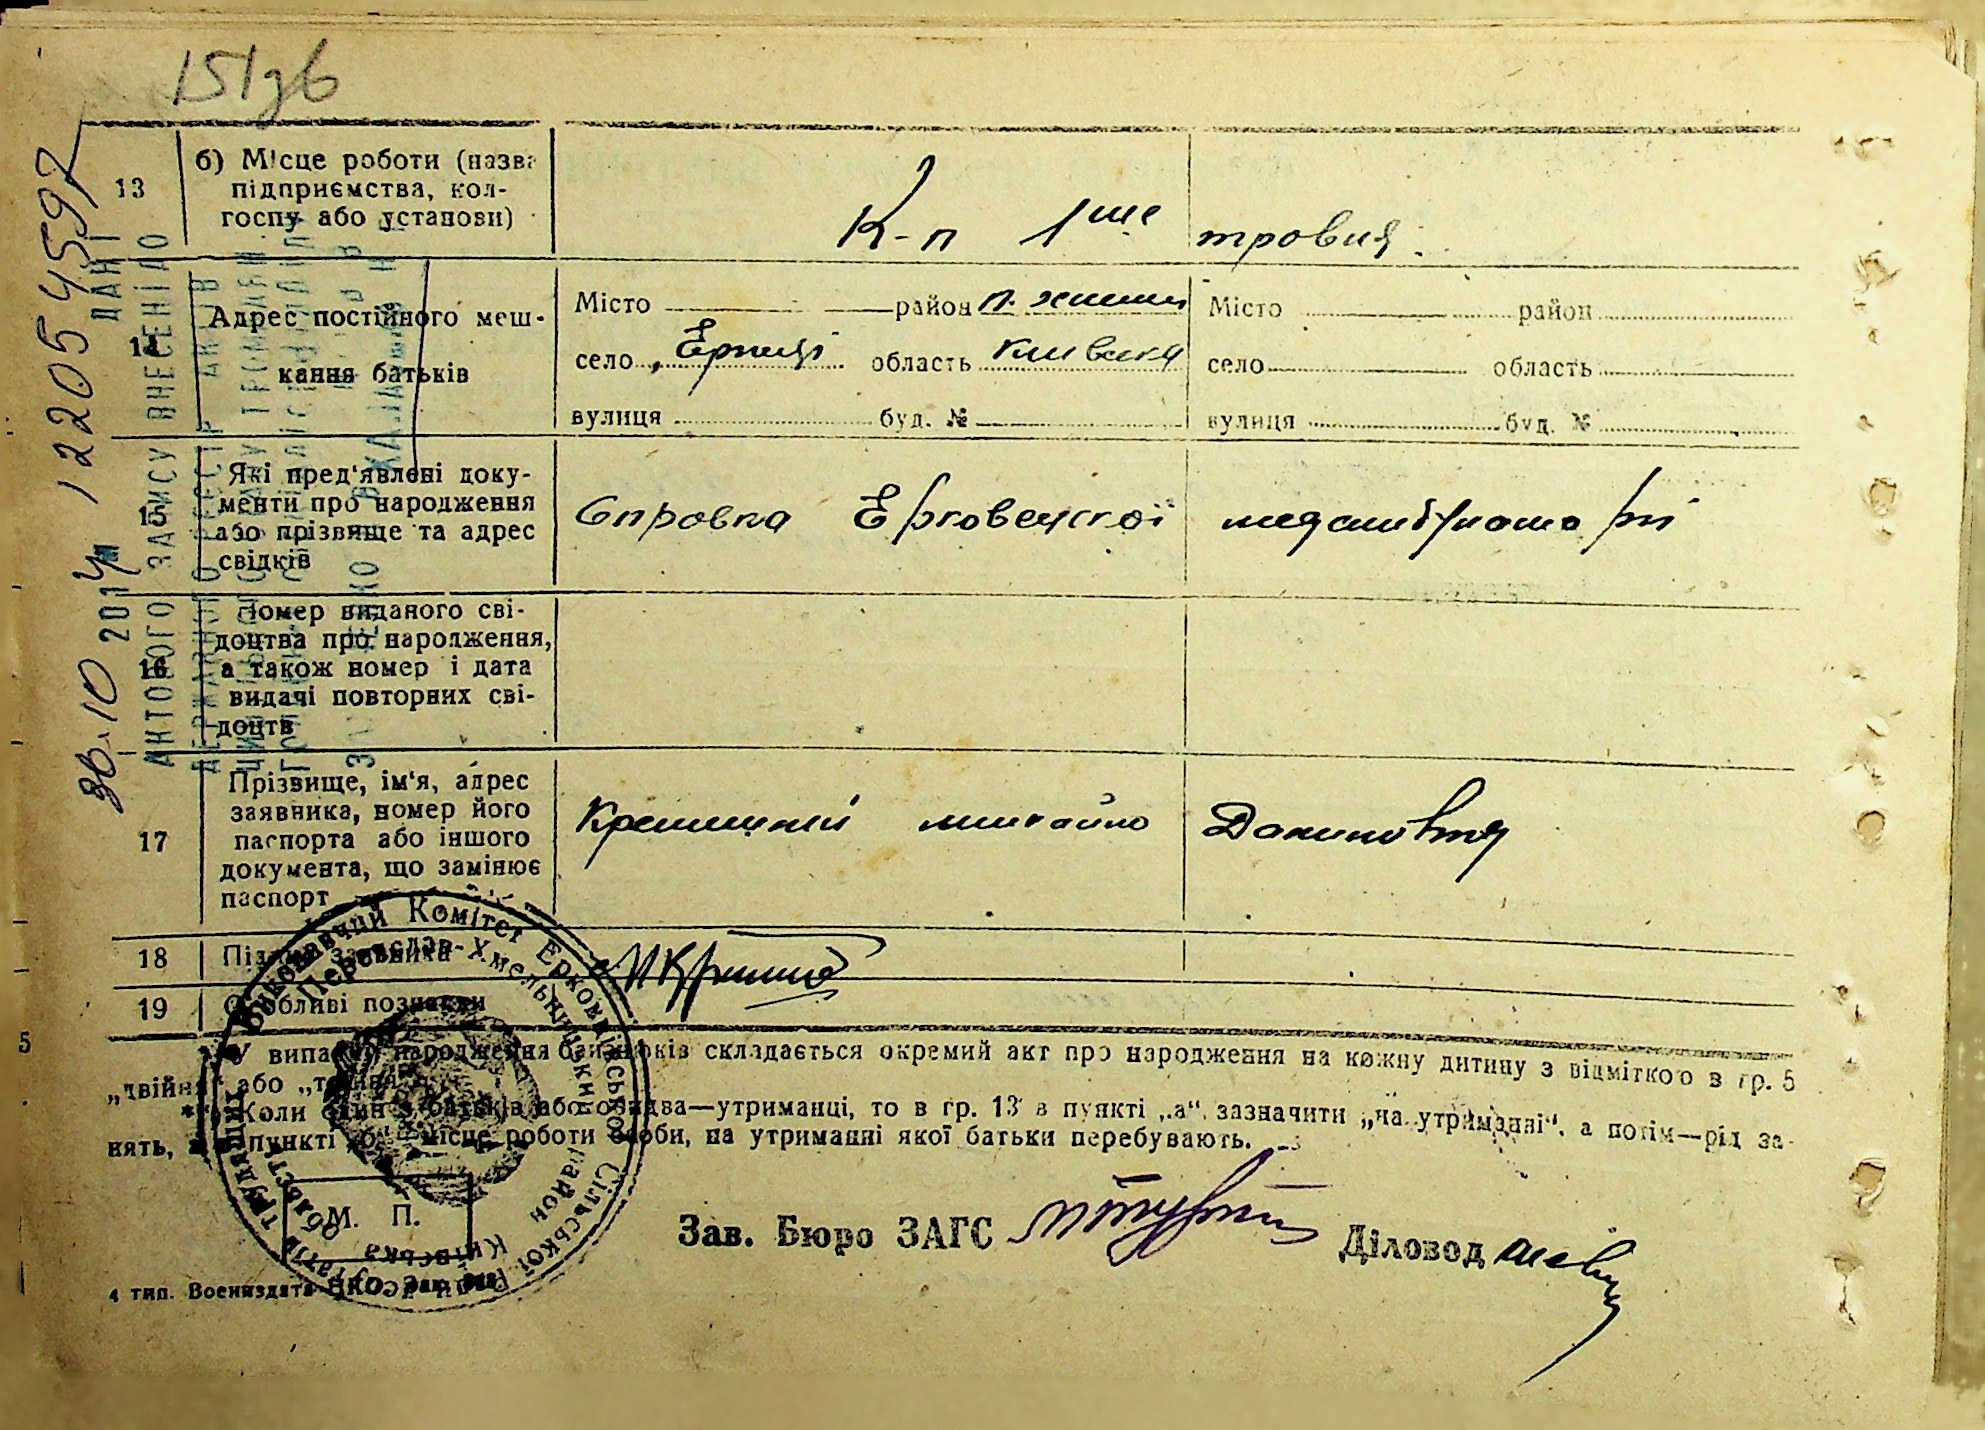 151зв
13
б) Місце роботи (назва
підприємства, кол-
госпу або установи)
К-п 1ше травня.
14
Адрес постійного меш-
кання батьків
Місто район п. хмиш
село Ерківці область Київська
вулиця буд. №
Місто район
село область
вулиця буд. №
15
Які пред'явлені доку-
менти про народження
або прізвище та адрес
свідків
Справка Ерковецкої медамбулаторії
16
Номер виданого сві-
доцтва про народження,
а також номер і дата
видачі повторних сві-
доцтв
17
Прізвище, ім'я, адрес
заявника, номер його
паспорта або іншого
документа, що замінює
паспорт
михайло Данилович
18
Підпис заявника
19
Особливі познаки
У випадку народження близнюків складається окремий акт про народження на кожну дитину з відміткою в гр. 5
„двійня“ або „трійня“.
**) Коли один з батьків або обидва—утриманці, то в гр. 13 в пункті „а“ зазначити „на утриманні“, а потім—рід за-
нять, а в пункті „б“ місце роботи особи, на утриманні якої батьки перебувають.
М. П.
Зав. Бюро ЗАГС
Діловод
4 тип. Воениздата НКО. Зак.
Виконавчий Комітет Ерковецької Сільської Ради депутатів трудящих
Переяслав-Хмельницький район
Київська область
30.10 2014 122054597
ДАНІ
АКТОВОГО ЗАПИСУ ВНЕСЕНІ ДО
ДЕРЖАВНОГО РЕЄСТР АКТІВ
5